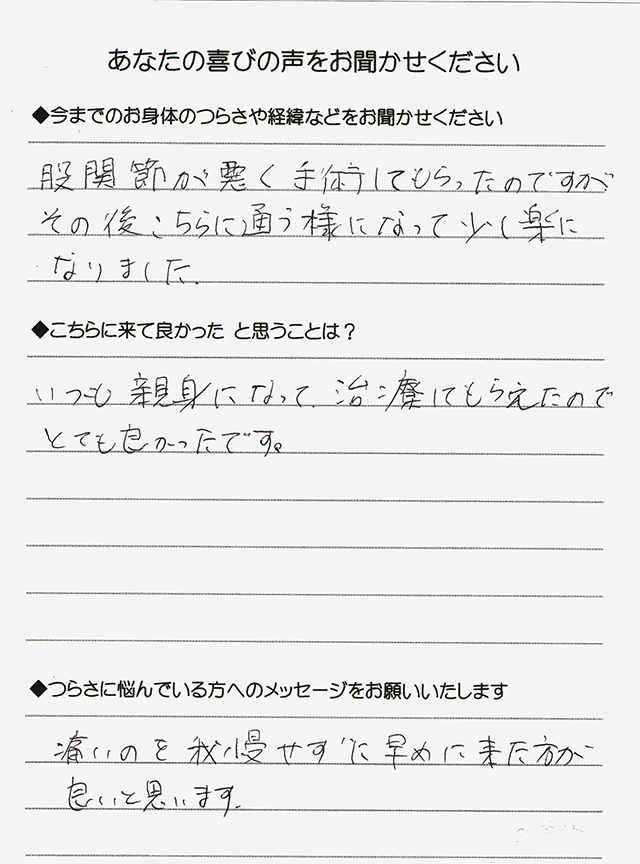 あなたの喜びの声をお聞かせください
◆今までのお身体のつらさや経緯などをお聞かせください
股関節が悪く手術してもらったのですが
その後こちらに通う様になって少し楽に
なりました.
◆こちらに来て良かった と思うことは？
いつも親身になって、治療してもらえたので
とても良かったです。
◆つらさに悩んでいる方へのメッセージをお願いいたします
痛いのを我慢せずに早めに来た方が
良いと思います.